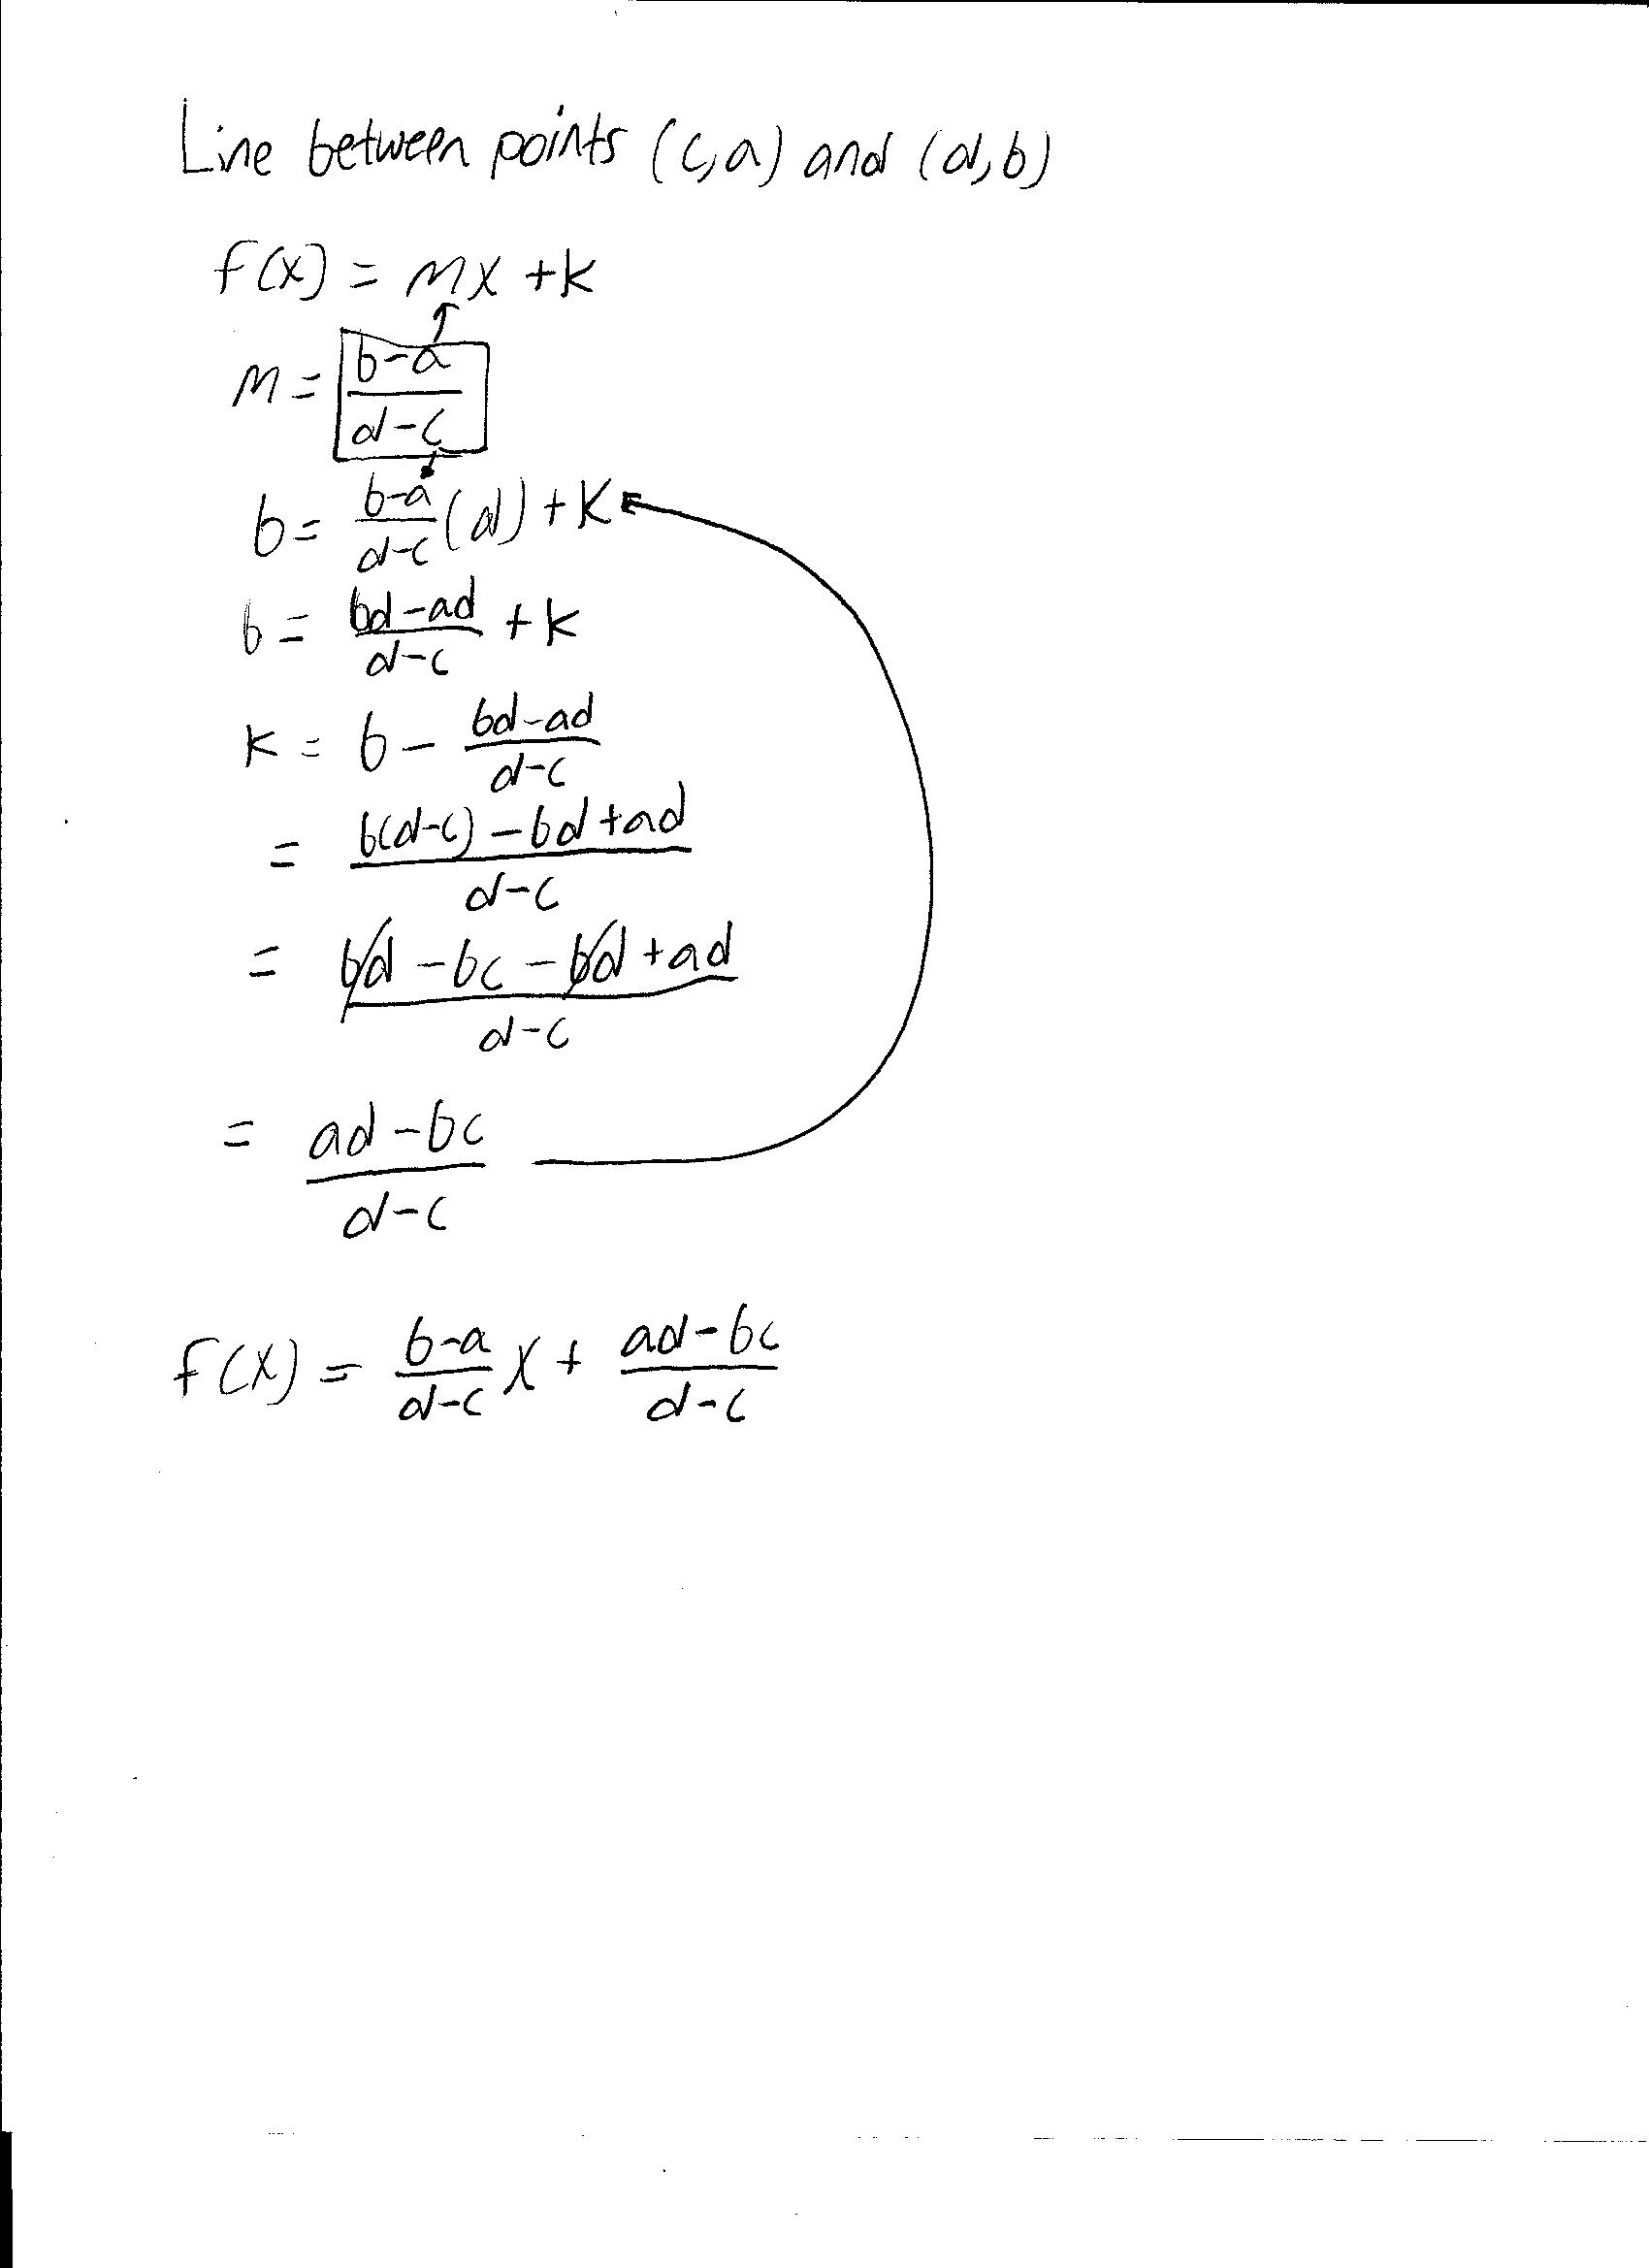 Line between points (c,a) and (d,b)
f(x) = mx + k
m = b-a / d-c
b = b-a / d-c (d) + k
b = bd-ad / d-c + k
k = b - bd-ad / d-c
= b(d-c) - bd + ad / d-c
= bd - bc - bd + ad / d-c
= ad - bc / d-c
f(x) = b-a / d-c x + ad-bc / d-c